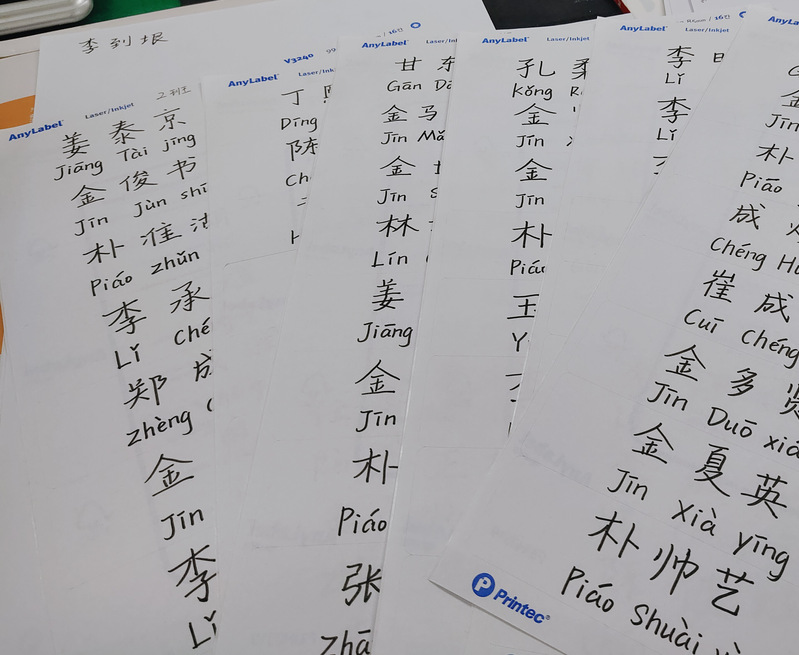 李到垠
2班
AnyLabel Laser/Inkjet
姜泰京
Jiāng Tài jīng
金俊书
Jīn Jùn shū
朴准
Piáo zhǔn
李承
Lǐ Ché
郑成
zhèng
金
Jīn
李
Lǐ
V3240
AnyLabel Laser/Inkjet
丁
Dīng
陈
Ch
AnyLabel Laser/Inkjet
甘东
Gān
金马
Jīn Mǎ
金
Jīn
林
Lín
姜
Jiāng
金
Jīn
朴
Piáo
张
Zhā
AnyLabel Laser/Inkjet
孔柔
kǒng R
金
Jīn
金
Jīn
朴
Piáo
王
Y
AnyLabel Laser/Inkjet
李
Lǐ
李
Lǐ
AnyLabel
金
Jīn
朴
Piáo
成
Chéng Hu
崔成
Cuī Chéng
金多贤
Jīn Duō xiá
金夏英
Jīn xià yīng
朴帅艺
Piáo Shuài
Printec